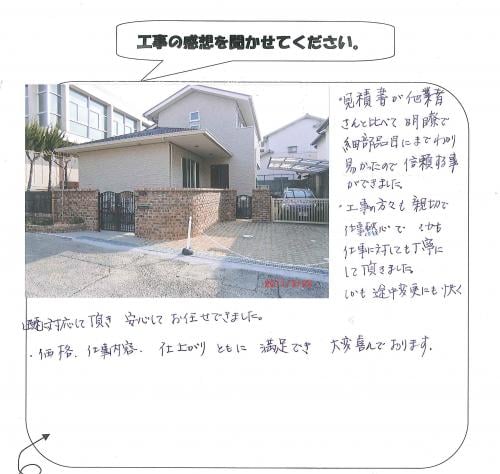 工事の感想を聞かせてください。
・見積書が他業者
さんと比べて明瞭で
細部品目にまでわかり
易かったので信頼する事
ができました
・工事の方々も親切で
仕事熱心で しかも
仕事に対しても丁寧に
して頂きました
しかも途中変更にも快く
対応して頂き 安心してお任せできました。
・価格、仕事内容、仕上がりともに 満足でき 大変喜んでおります。